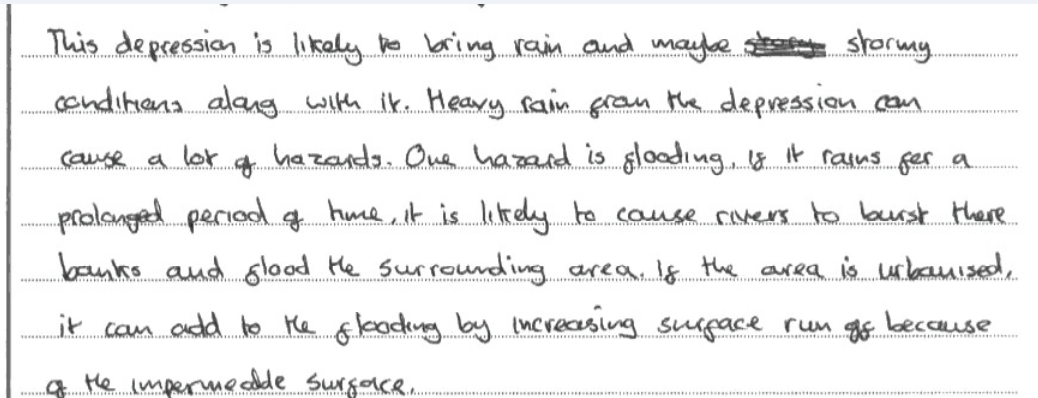 This depression is likely to bring rain and maybe stormy
conditions along with it. Heavy rain from the depression can
cause a lot of hazards. One hazard is flooding, if it rains for a
prolonged period of time, it is likely to cause rivers to burst there
banks and flood the surrounding area. If the area is urbanised,
it can add to the flooding by increasing surface run off because
of the impermeable surface.